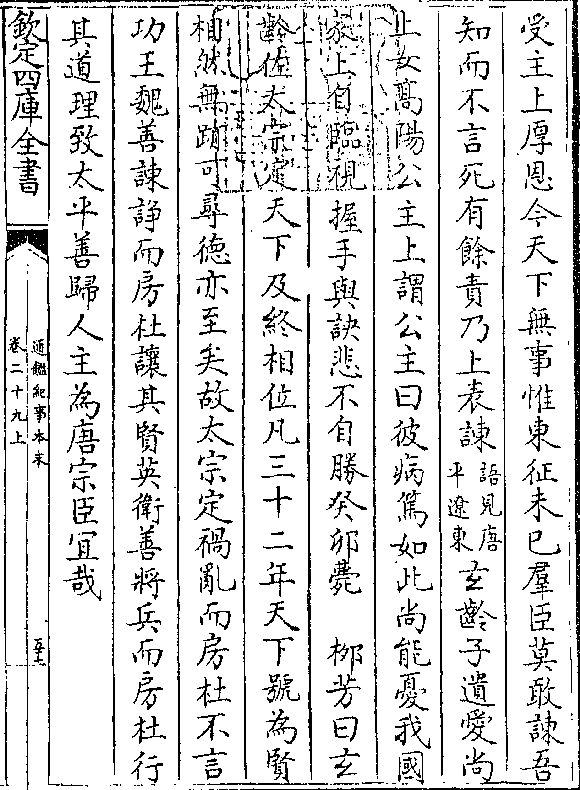 受主上厚恩今天下無事惟東征未已羣臣莫敢諫吾
知而不言死有餘責乃上表諫語見唐平遼東玄齡子遺愛尚
上女髙陽公主上謂公主曰彼病篤如此尚能憂我國
家上自臨視握手與訣悲不自勝癸卯薨 柳芳曰玄
齡佐太宗定天下及終相位凡三十二年天下號為賢
相然無跡可尋德亦至矣故太宗定禍亂而房杜不言
功王魏善諫諍而房杜讓其賢英衛善將兵而房杜行
其道理致太平善歸人主為唐宗臣宜哉
欽定四庫全書
通鑑紀事本末
卷二十九上